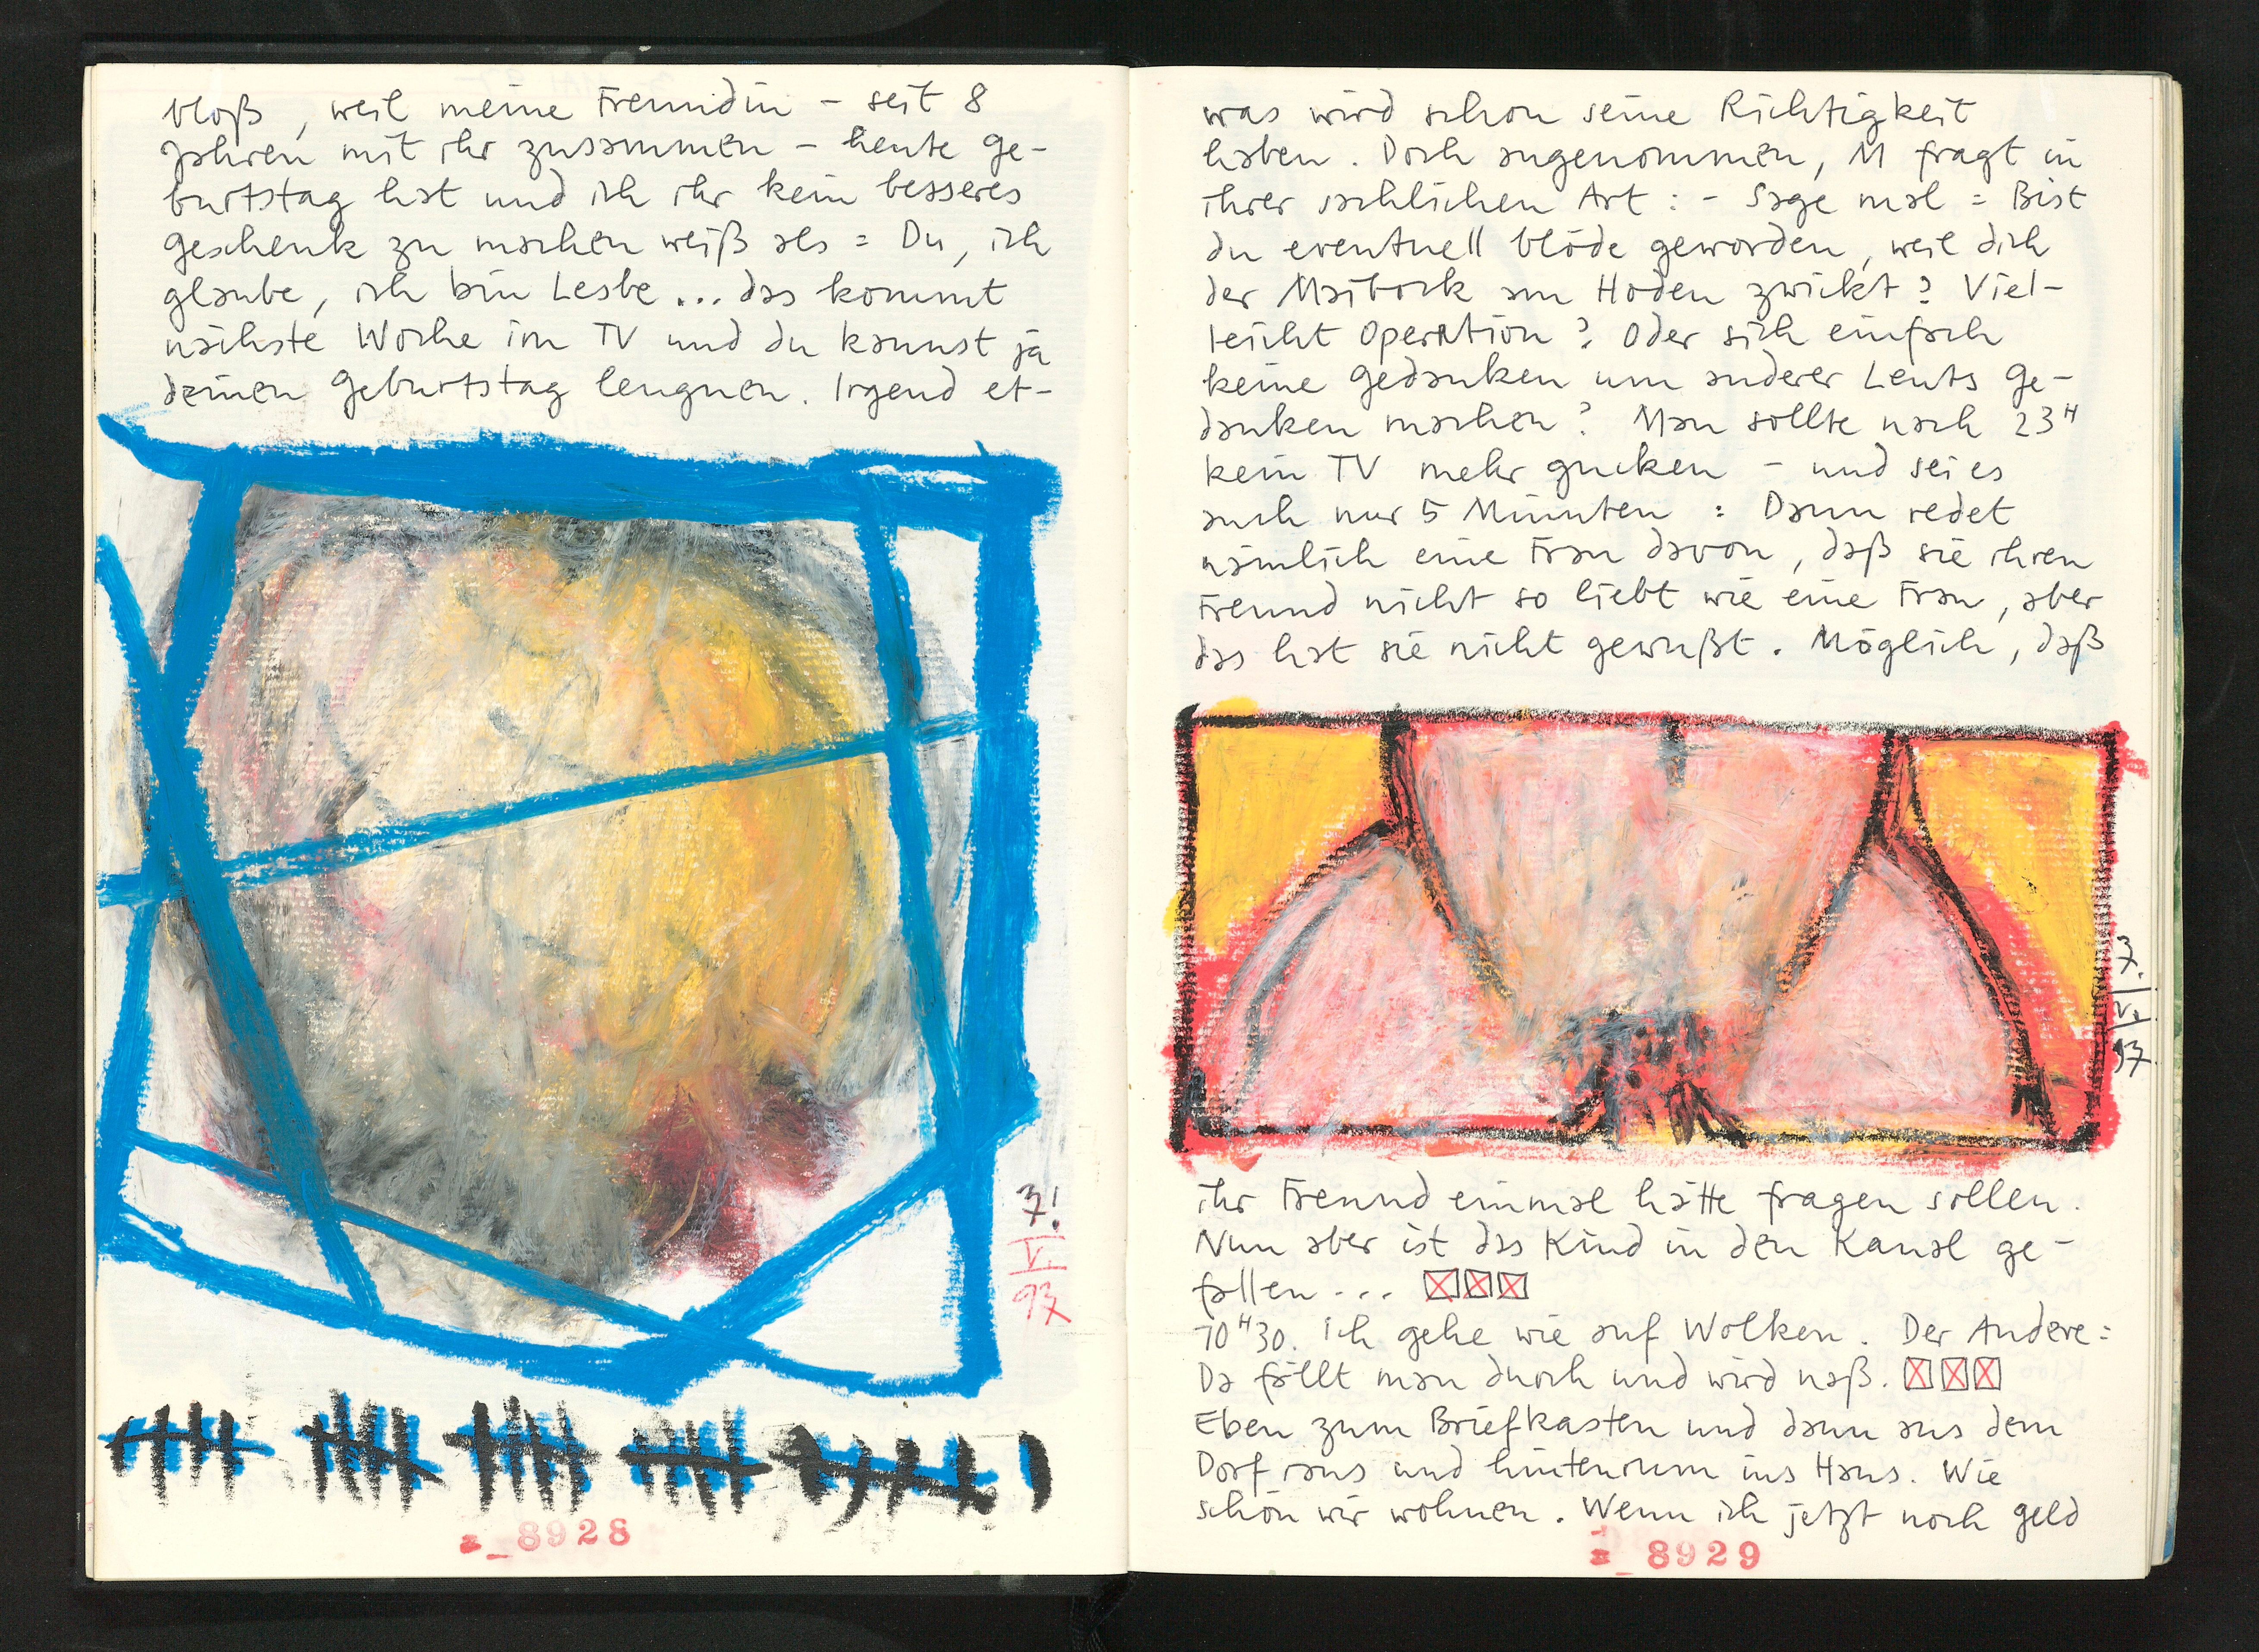 bloß, weil meine Freundin – seit 8
Jahren mit ihr zusammen – heute Ge-
burtstag hat und ich ihr kein besseres
Geschenk zu machen weiß als = Du, ich
glaube, ich bin Lesbe... das kommt
nächste Woche im TV und du kannst ja
deinen Geburtstag leugnen. Irgend et-
7!
V.
97
8928
was wird schon seine Richtigkeit
haben. Doch angenommen, M fragt in
ihrer sachlichen Art: - Sage mal = Bist
du eventuell blöde geworden, weil dich
der Maibock am Hoden zwickt? Viel-
leicht Operation? Oder sich einfach
keine Gedanken um anderer Leuts Ge-
danken machen? Man sollte nach 23H
kein TV mehr gucken – und sei es
auch nur 5 Minuten : Dann redet
nämlich eine Frau davon, daß sie ihren
Freund nicht so liebt wie eine Frau, aber
das hat sie nicht gewußt. Möglich, daß
7.
V.
97
ihr Freund einmal hätte fragen sollen.
Nun aber ist das Kind in den Kanal ge-
fallen...
10H30. Ich gehe wie auf Wolken. Der Andere:
Da fällt man durch und wird naß.
Eben zum Briefkasten und dann aus dem
Dorf raus und hintenrum ins Haus. Wie
schön wir wohnen. Wenn ich jetzt noch Geld
8929